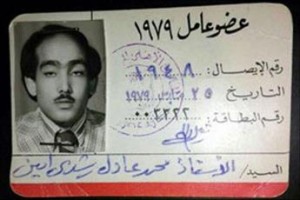 عضو عامل ١٩٧٩
رقم الإيصال: ١٩٤٨
التاريخ ٢٥ مارس ١٩٧٩
رقم البطاقة: ٠٠٢٢٢٢
السيد/ الأستاذ محمد عادل رشدى أمين